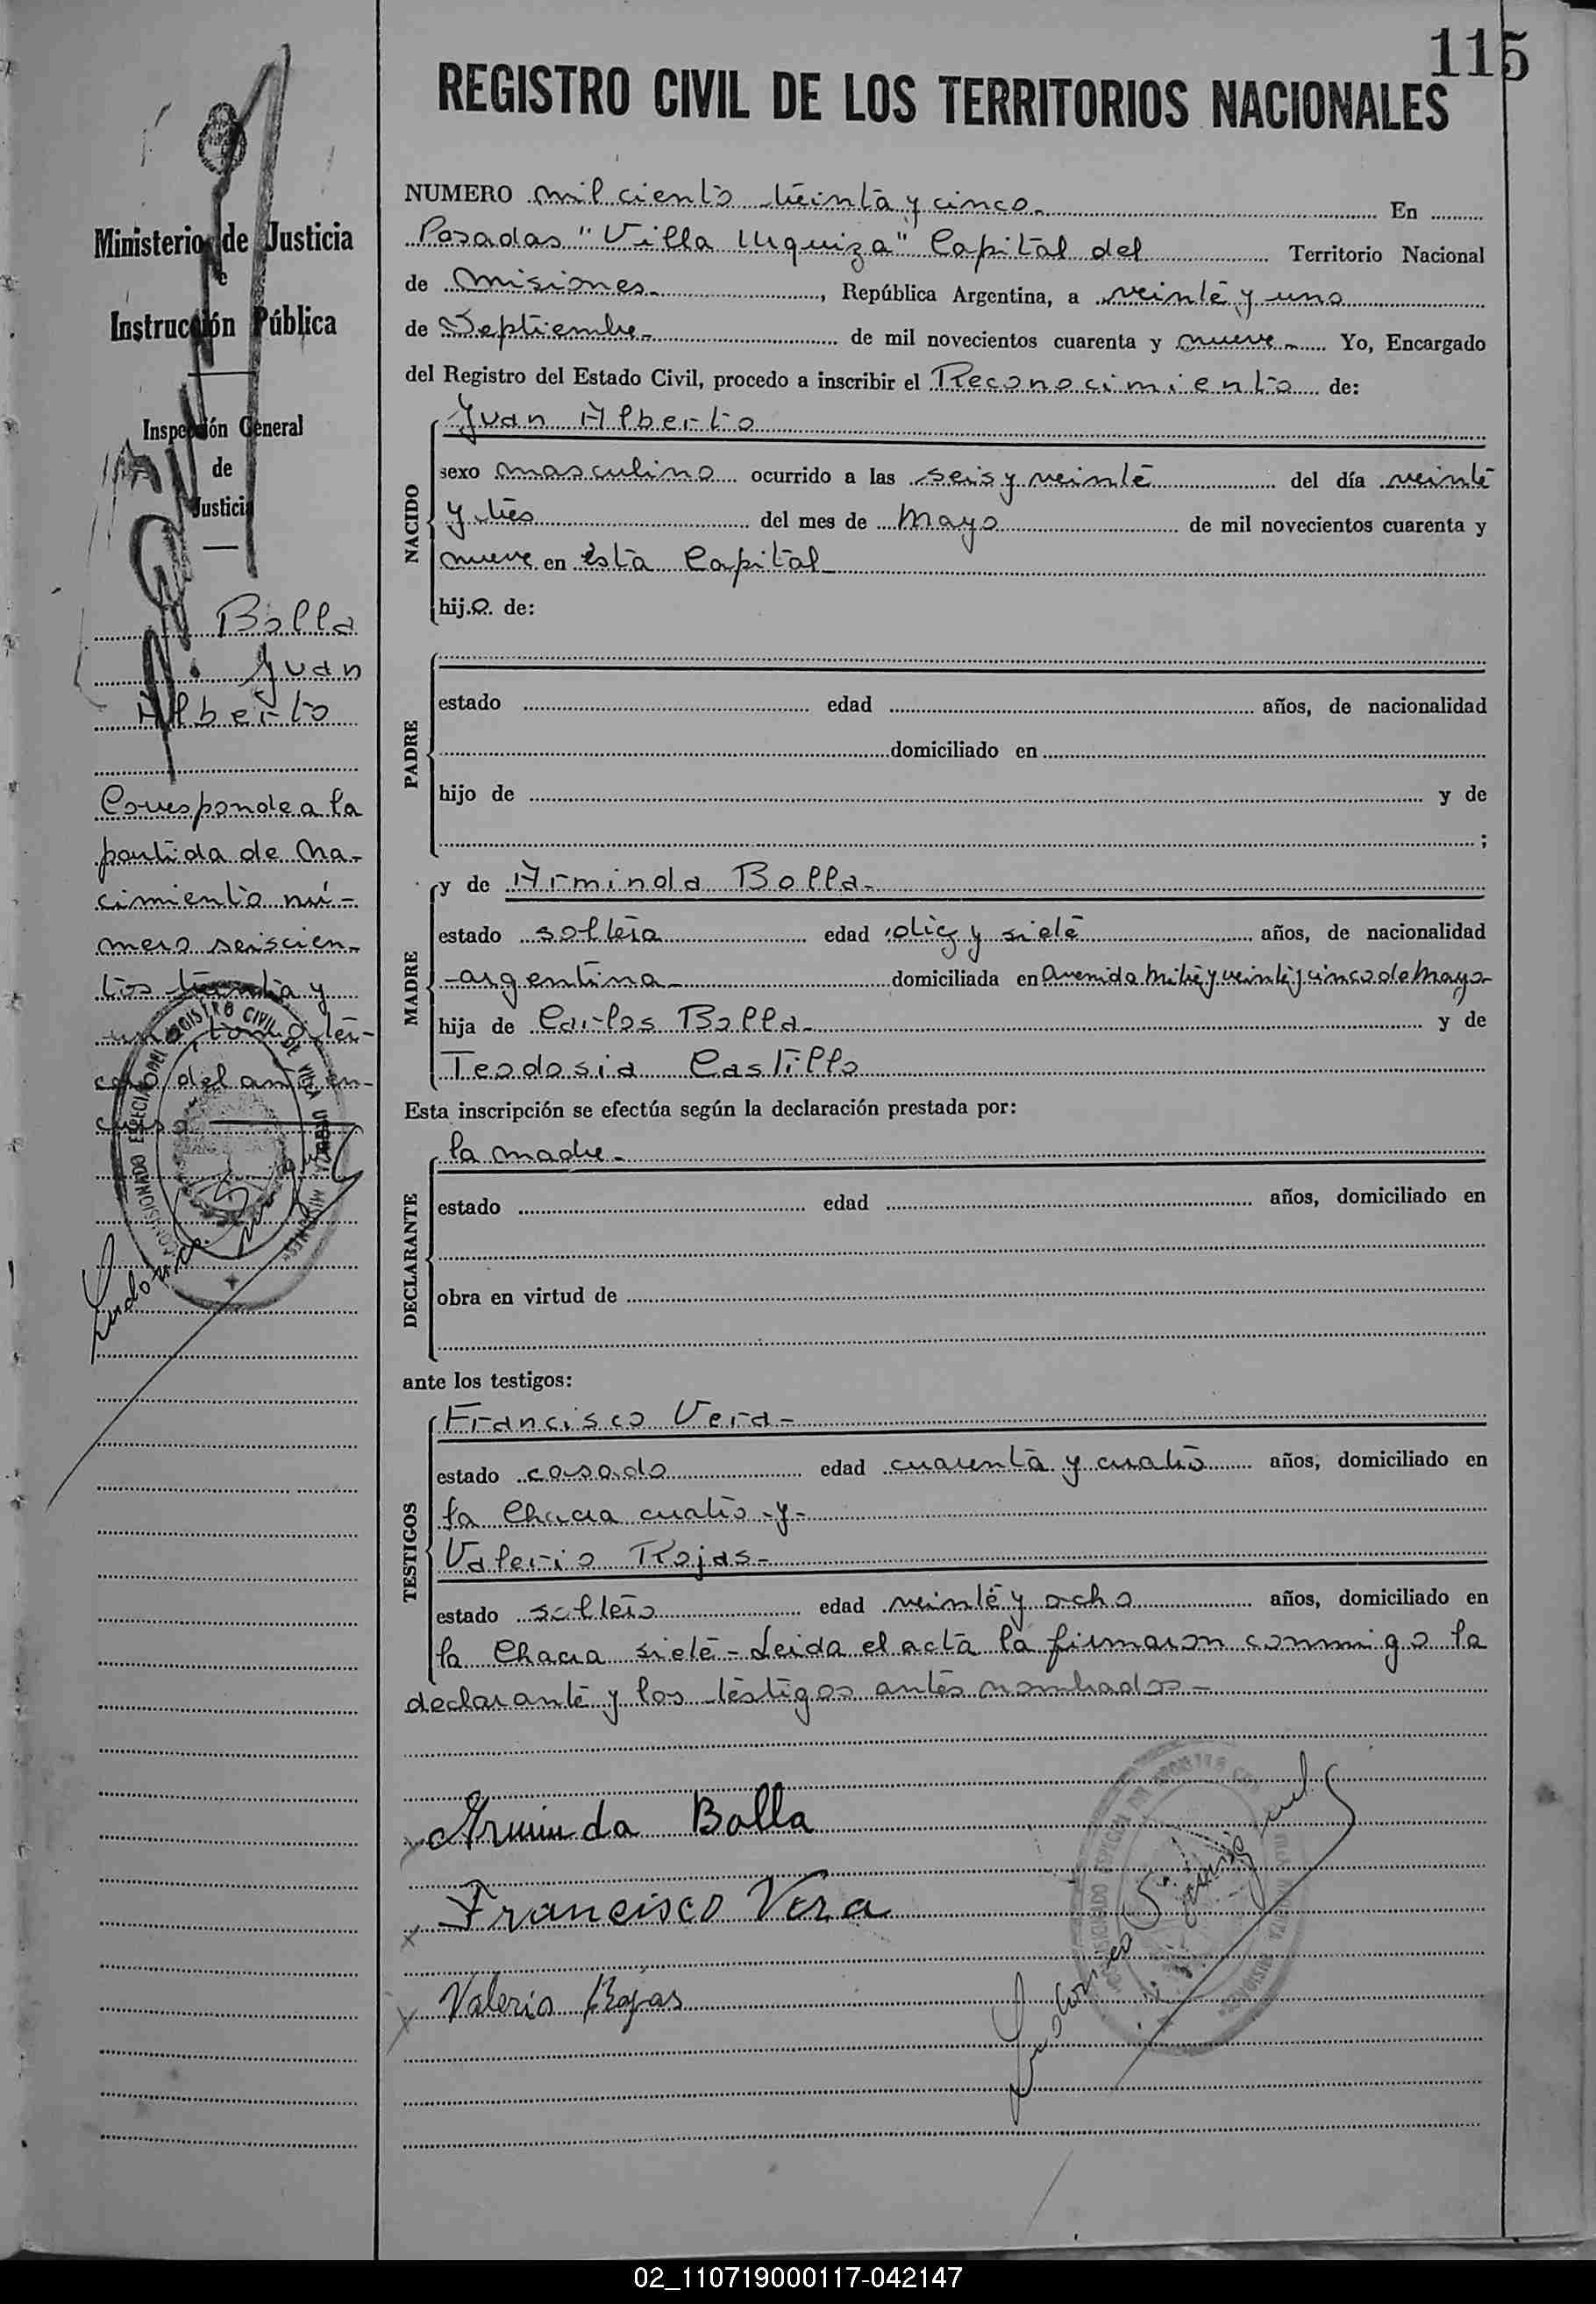 115
REGISTRO CIVIL DE LOS TERRITORIOS NACIONALES
Ministerio de Justicia
e
Instrucción Pública
Inspección General
de
Justicia
Bolla
Juan
Alberto
Corresponde a la
partida de na-
cimiento nú-
mero seiscien-
tos treinta y
uno, tomo ter-
cero del año en-
curso
NUMERO mil ciento treinta y cinco. En
Posadas "Villa Urquiza" Capital del Territorio Nacional
de Misiones, República Argentina, a veinte y uno
de Septiembre de mil novecientos cuarenta y nueve Yo, Encargado
del Registro del Estado Civil, procedo a inscribir el Reconocimiento de:
NACIDO
Juan Alberto
sexo masculino ocurrido a las seis y veinte del día veinte
y tres del mes de Mayo de mil novecientos cuarenta y
nueve en esta Capital
hijo de:
PADRE
estado edad años, de nacionalidad
domiciliado en
hijo de y de
;
MADRE
y de Arminda Bolla
estado soltera edad diez y siete años, de nacionalidad
argentina domiciliada en Avenida Mitre y veinte y cinco de Mayo
hija de Carlos Bolla y de
Teodosia Castillo
Esta inscripción se efectúa según la declaración prestada por:
DECLARANTE
la madre
estado edad años, domiciliado en
obra en virtud de
ante los testigos:
TESTIGOS
Francisco Vera
estado casado edad cuarenta y cuatro años, domiciliado en
la Chacra cuatro -y-
Valerio Rojas
estado soltero edad veinte y ocho años, domiciliado en
la Chacra siete - Leida el acta la firmaron conmigo la
declarante y los testigos antes nombrados
Arminda Bolla
Francisco Vera
Valerio Rojas
02_110719000117-042147